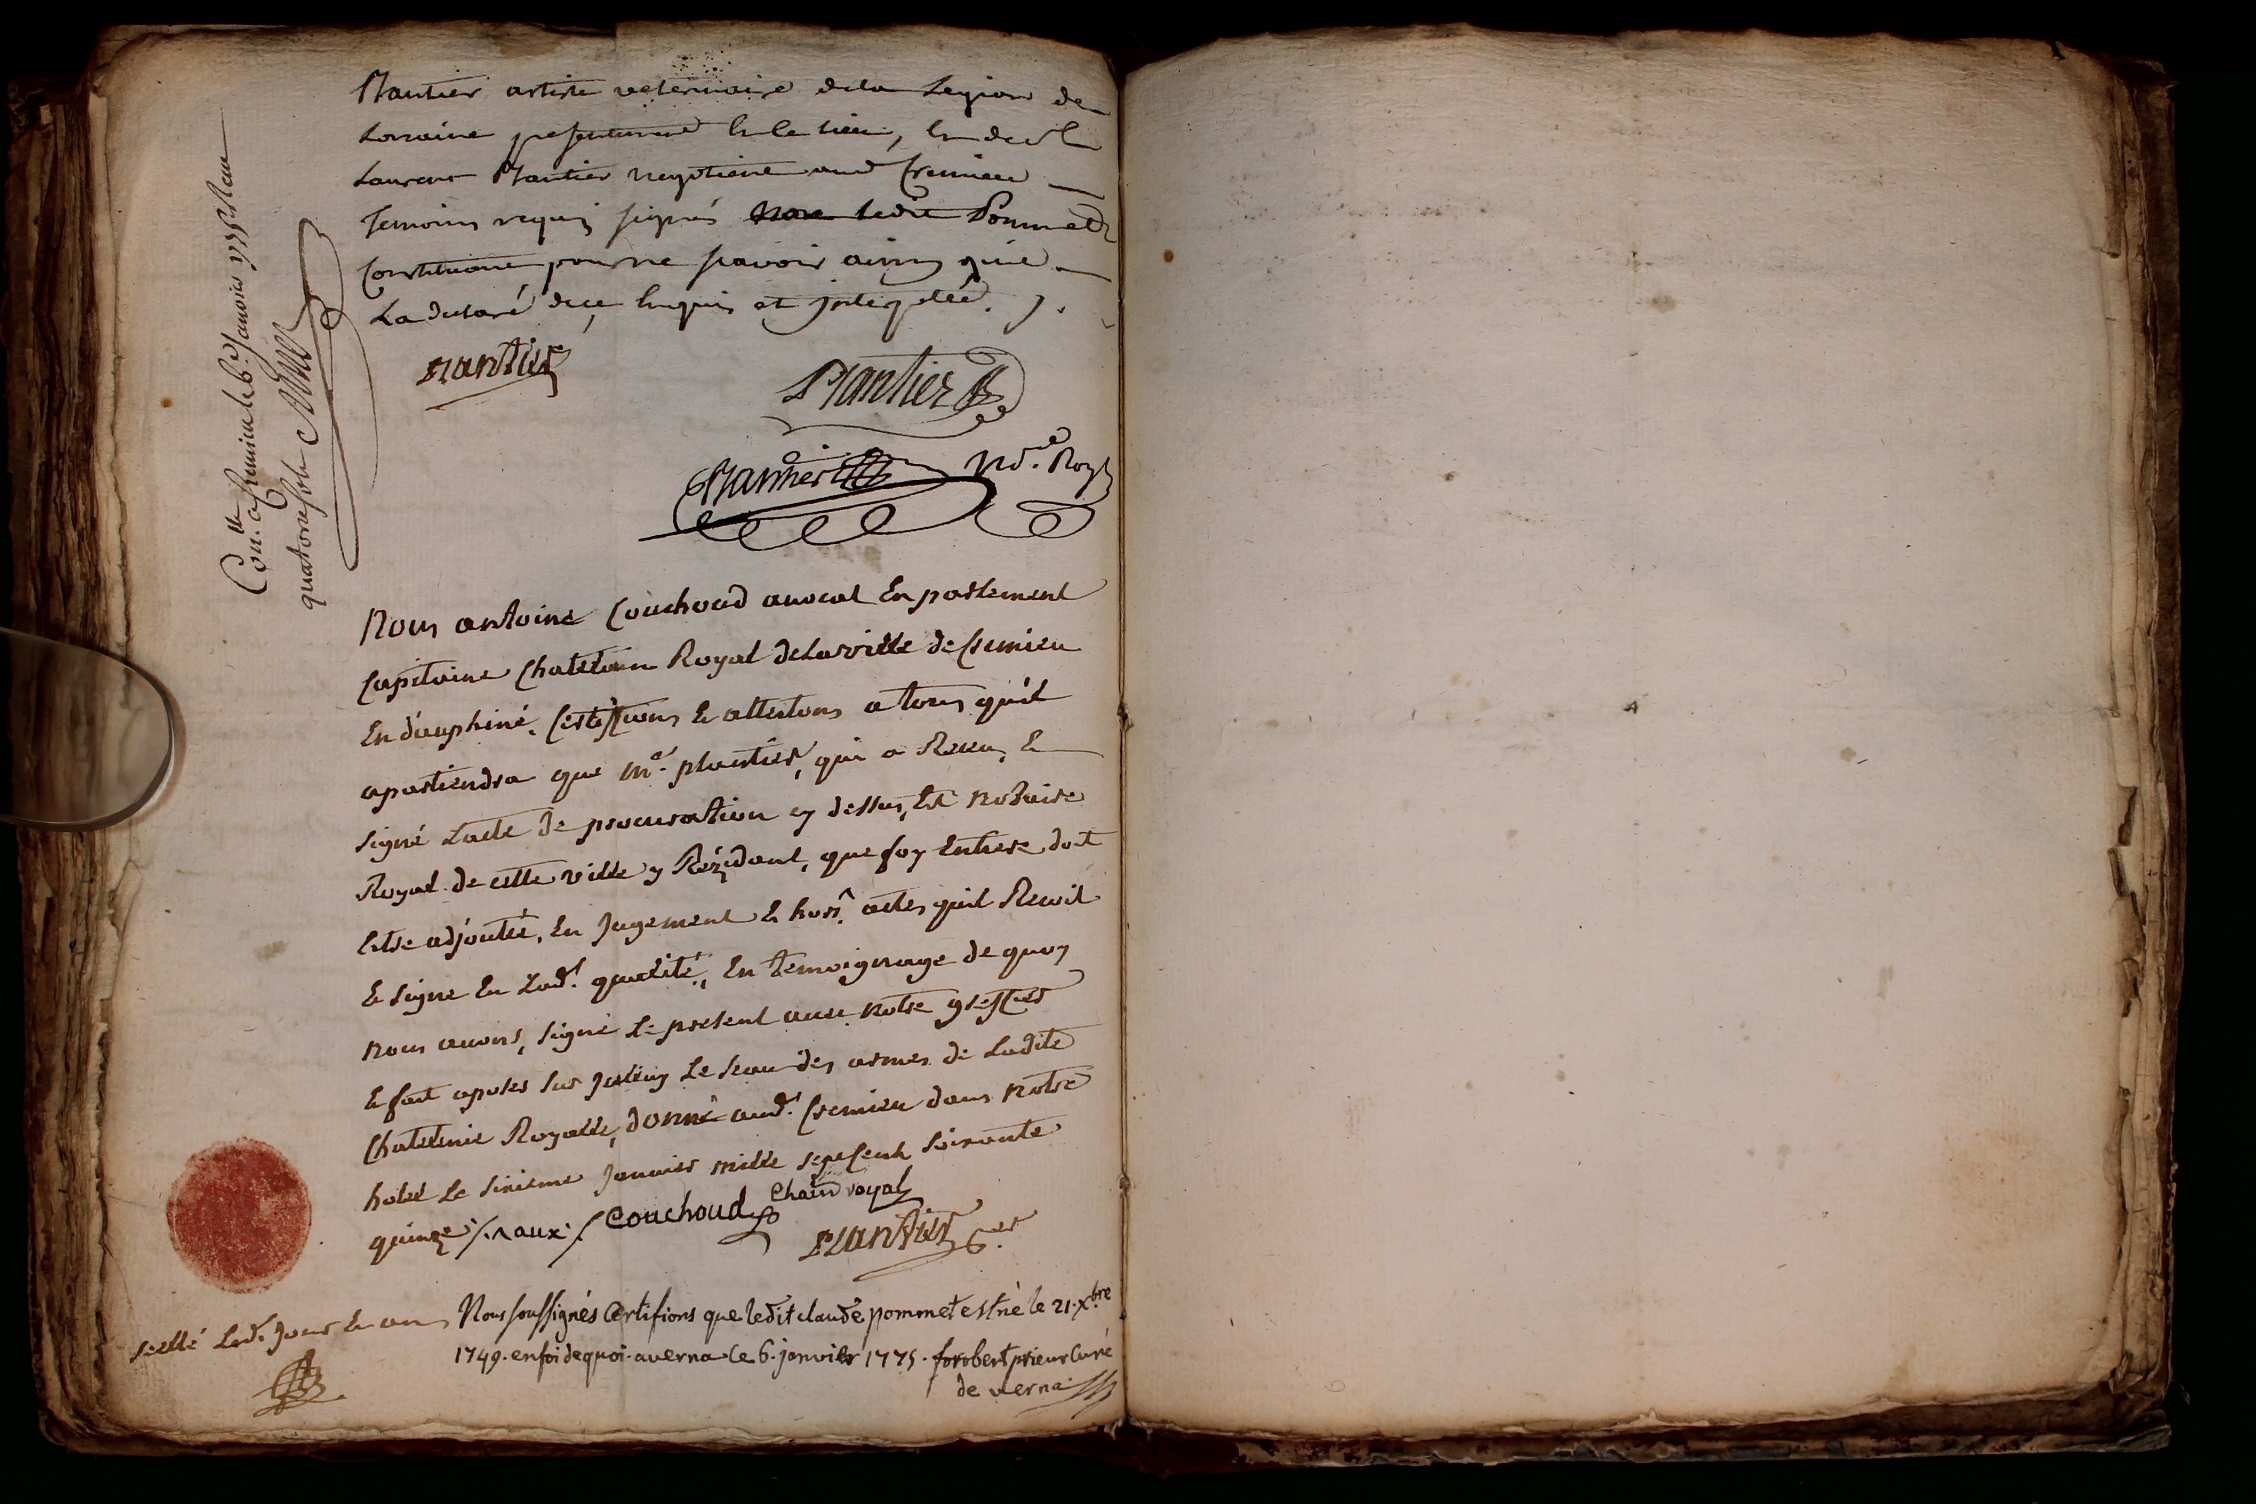 Plantier artiste veterinaire dela Legion de
Lorraine presentement en ce lieu, et de sr
Laurent Plantier negotient aud Cremieu
temoins requis signés non ledit Pommet
Constituant pour ne scavoir ainsy qu'il
La declaré de ce enquis et interpellé.
plantier
Plantier
Plantier Nore Royl
Con.lle a Cremieu le 6e Janvier 1775 Reçu
quatorze sols
Nous antoine Couchoud avocat En parlement
Capitaine Chatelain Royal de La ville de Cremieu
En dauphiné, Certiffions et attestons a tous qu'il
apartiendra que me. plantier, qui a Receu, et
signé L'acte de procuration cy dessus, Est notaire
Royal de cette ville y Rézidant, que foy Entiere doit
Etre adjoutée, En Jugement et hors, actes quil Recoit
et signe En Lad. qualité, En temoignage de quoy
nous avons, signé Le present avec notre greffier
et fait aposer sur Jceluy Le sceau des armes de Ladite
Chatelenie Royalle, donné aud. Cremieu dans notre
hotel Le sixieme Janvier mille sept Cent soixante
quinze /. aux ./ Couchoud Chain royal
plantier Ger
scellé Led. Jour et an
Nous soussignés Certifions que ledit claude pommet est né le 21. Xbre
1749. en foi de quoi. a verna. le 6. janvier 1775. forobert prieur Curé
de verna